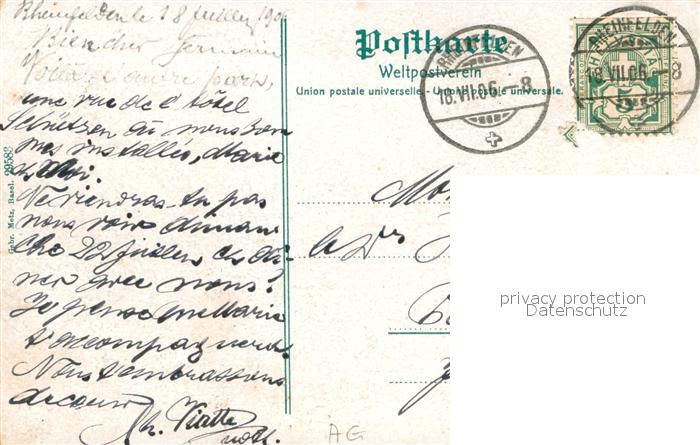 Rheinfelden le 18 Juillet 1906
Bien cher Germain
Voilà d'autre part,
une vue de l'hôtel
Schützen où nous som
mes installés, Marie
& Moi.
Ne viendras-tu pas
nous voir diman
che 22 Juillet et dî-
ner avec nous?
Je pense que Marie
t'accompagnera.
Nous t'embrassons
de cœur
Viatte
Postkarte
Weltpostverein
Union postale universelle. - Unione postale universale.
RHEINFELDEN
18.VII.06. - 8
RHEINFELDEN
18.VII.06. - 8
HELVETIA
5
Gebr. Metz, Basel. 29583
Mon
le Dr
privacy protection
Datenschutz
AG